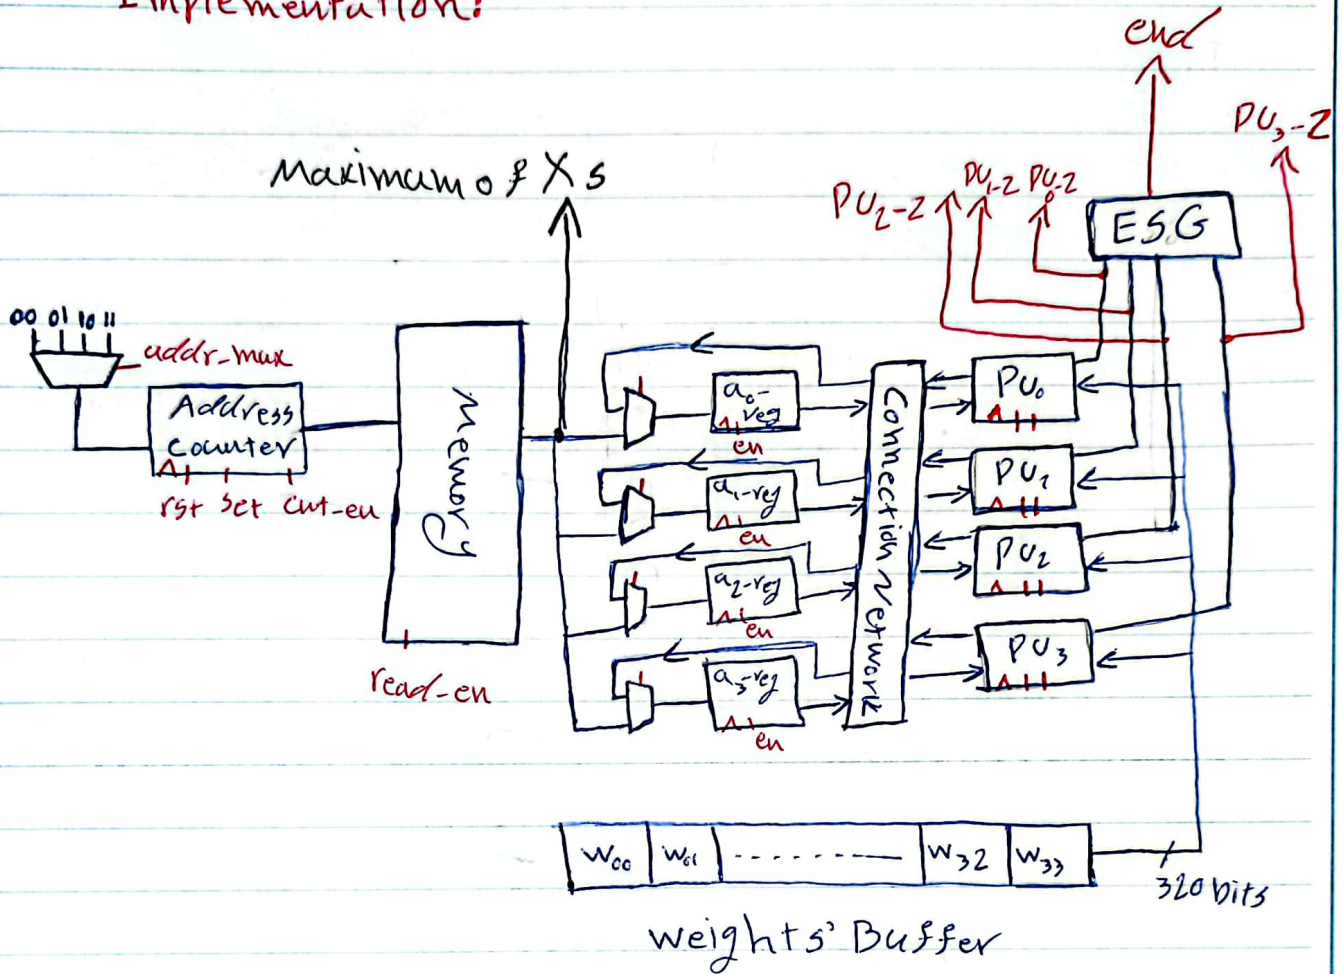 Implementation:
end
PU3-Z
Maximum of Xs
PU2-Z
PU1-Z
PU0-Z
ESG
00 01 10 11
addr-mux
Address
Counter
rst set cnt-en
Memory
read-en
a0-
reg
en
a1-reg
en
a2-reg
en
a3-reg
en
Connection Network
PU0
PU1
PU2
PU3
W00 W01 ........ W32 W33
320 bits
Weights' Buffer